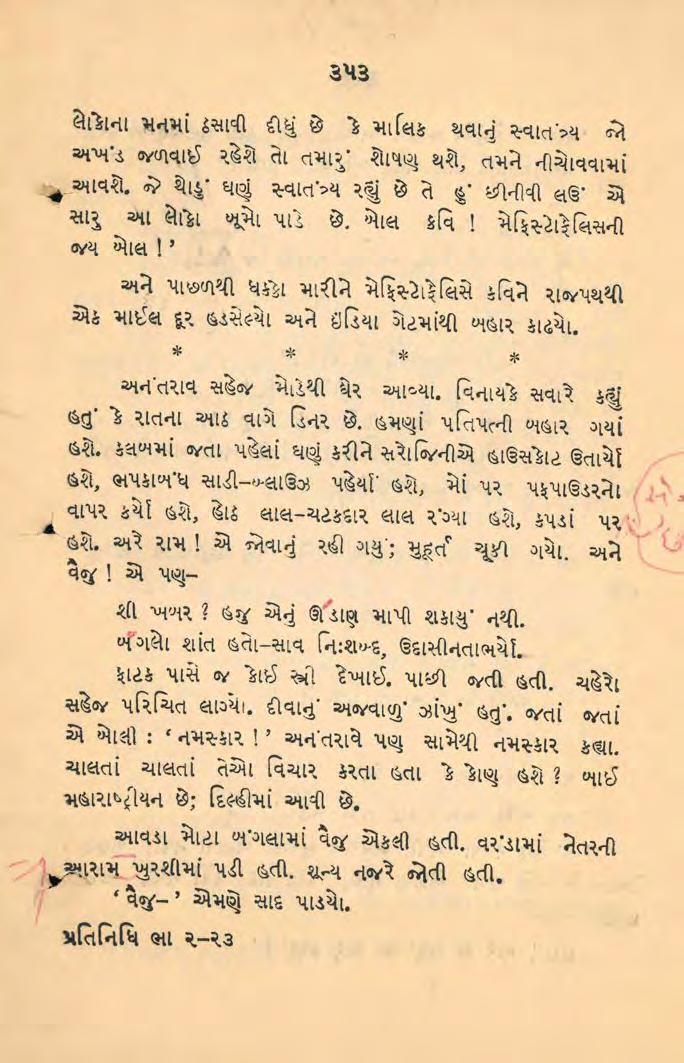 ૩૫૩
લોકોના મનમાં ઠસાવી દીધું છે કે માલિક થવાનું સ્વાતંત્ર્ય જો
અખંડ જળવાઈ રહેશે તો તમારું શોષણ થશે, તમને નીચોવવામાં
આવશે. જે થોડું ઘણું સ્વાતંત્ર્ય રહ્યું છે તે હું છીનીવી લઉં એ
સારુ આ લોકો બૂમો પાડે છે. બોલ કવિ ! મેફિસ્ટોફેલિસની
જય બોલ !’
અને પાછળથી ધક્કો મારીને મેફિસ્ટોફેલિસે કવિને રાજપથથી
એક માઈલ દૂર હડસેલ્યો અને ઇંડિયા ગેટમાંથી બહાર કાઢયો.
* * * *
અનંતરાવ સહેજ મોડેથી ઘેર આવ્યા. વિનાયકે સવારે કહ્યું
હતું કે રાતના આઠ વાગે ડિનર છે. હમણાં પતિપત્ની બહાર ગયાં
હશે. કલબમાં જતા પહેલાં ઘણું કરીને સરોજિનીએ હાઉસકોટ ઉતાર્યો
હશે, ભપકાબંધ સાડી–બ્લાઉઝ પહેર્યાં હશે, મોં પર પફપાઉડરનો
વાપર કર્યો હશે, હોઠ લાલ–ચટકદાર લાલ રંગ્યા હશે, કપડાં પર
હશે. અરે રામ ! એ જોવાનું રહી ગયું; મુહૂર્ત ચૂકી ગયો. અને
વૈજુ ! એ પણ–
શી ખબર ? હજુ એનું ઊંડાણ માપી શકાયું નથી.
બંગલો શાંત હતો–સાવ નિઃશબ્દ, ઉદાસીનતાભર્યો.
ફાટક પાસે જ કોઈ સ્ત્રી દેખાઈ. પાછી જતી હતી. ચહેરો
સહેજ પરિચિત લાગ્યો. દીવાનું અજવાળું ઝાંખું હતું. જતાં જતાં
એ બોલી : ‘નમસ્કાર !’ અનંતરાવે પણ સામેથી નમસ્કાર કહ્યા.
ચાલતાં ચાલતાં તેઓ વિચાર કરતા હતા કે કોણ હશે ? બાઈ
મહારાષ્ટ્રીયન છે; દિલ્હીમાં આવી છે.
આવડા મોટા બંગલામાં વૈજુ એકલી હતી. વરંડામાં નેતરની
આરામ ખુરશીમાં પડી હતી. શૂન્ય નજરે જોતી હતી.
‘વૈજુ–’ એમણે સાદ પાડયો.
પ્રતિનિધિ ભા ૨–૨૩